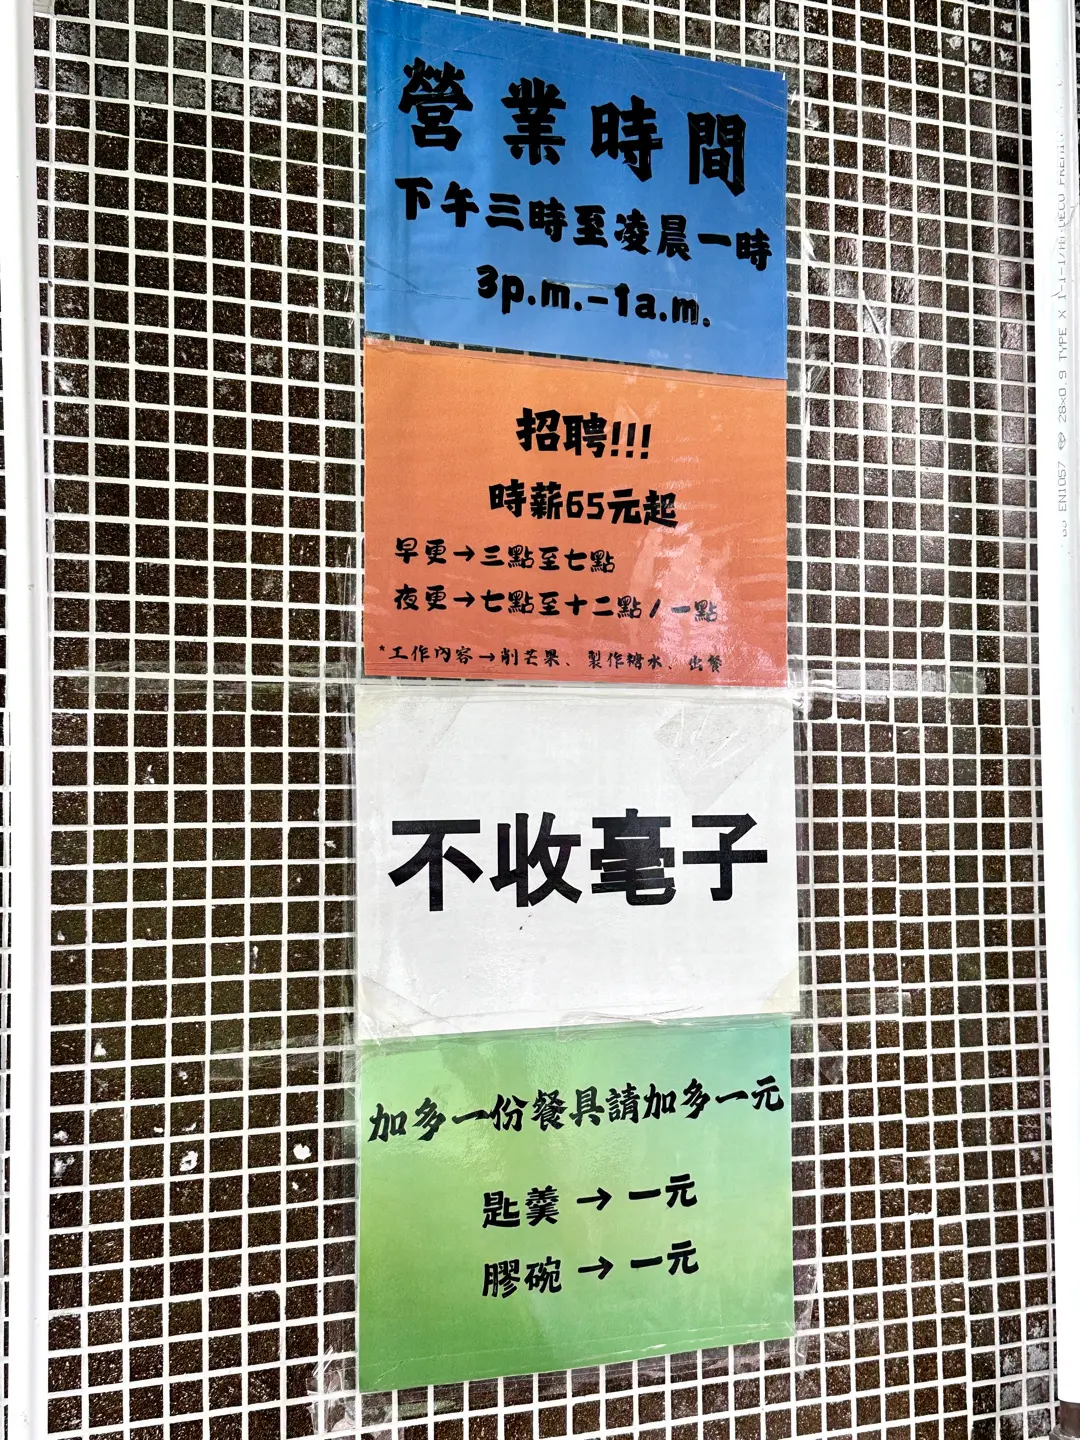 營業時間
下午三時至凌晨一時
3p.m.-1a.m.
招聘!!!
時薪65元起
早更→三點至七點
夜更→七點至十二點/一點
*工作內容→削芒果、製作糖水、出餐
不收毫子
加多一份餐具請加多一元
匙羹→一元
膠碗→一元
28×0.9 TYPE X
EN1057